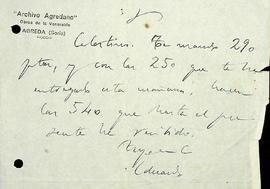 "Archivo Agredano"
Cerca de la Venerable
AGREDA (Soria)
Celestino. Te mando 290
ptas, y con las 250 que te he
entregado esta mañana, hacen
las 540 que hasta el pre
sente he recibido.
Eduardo